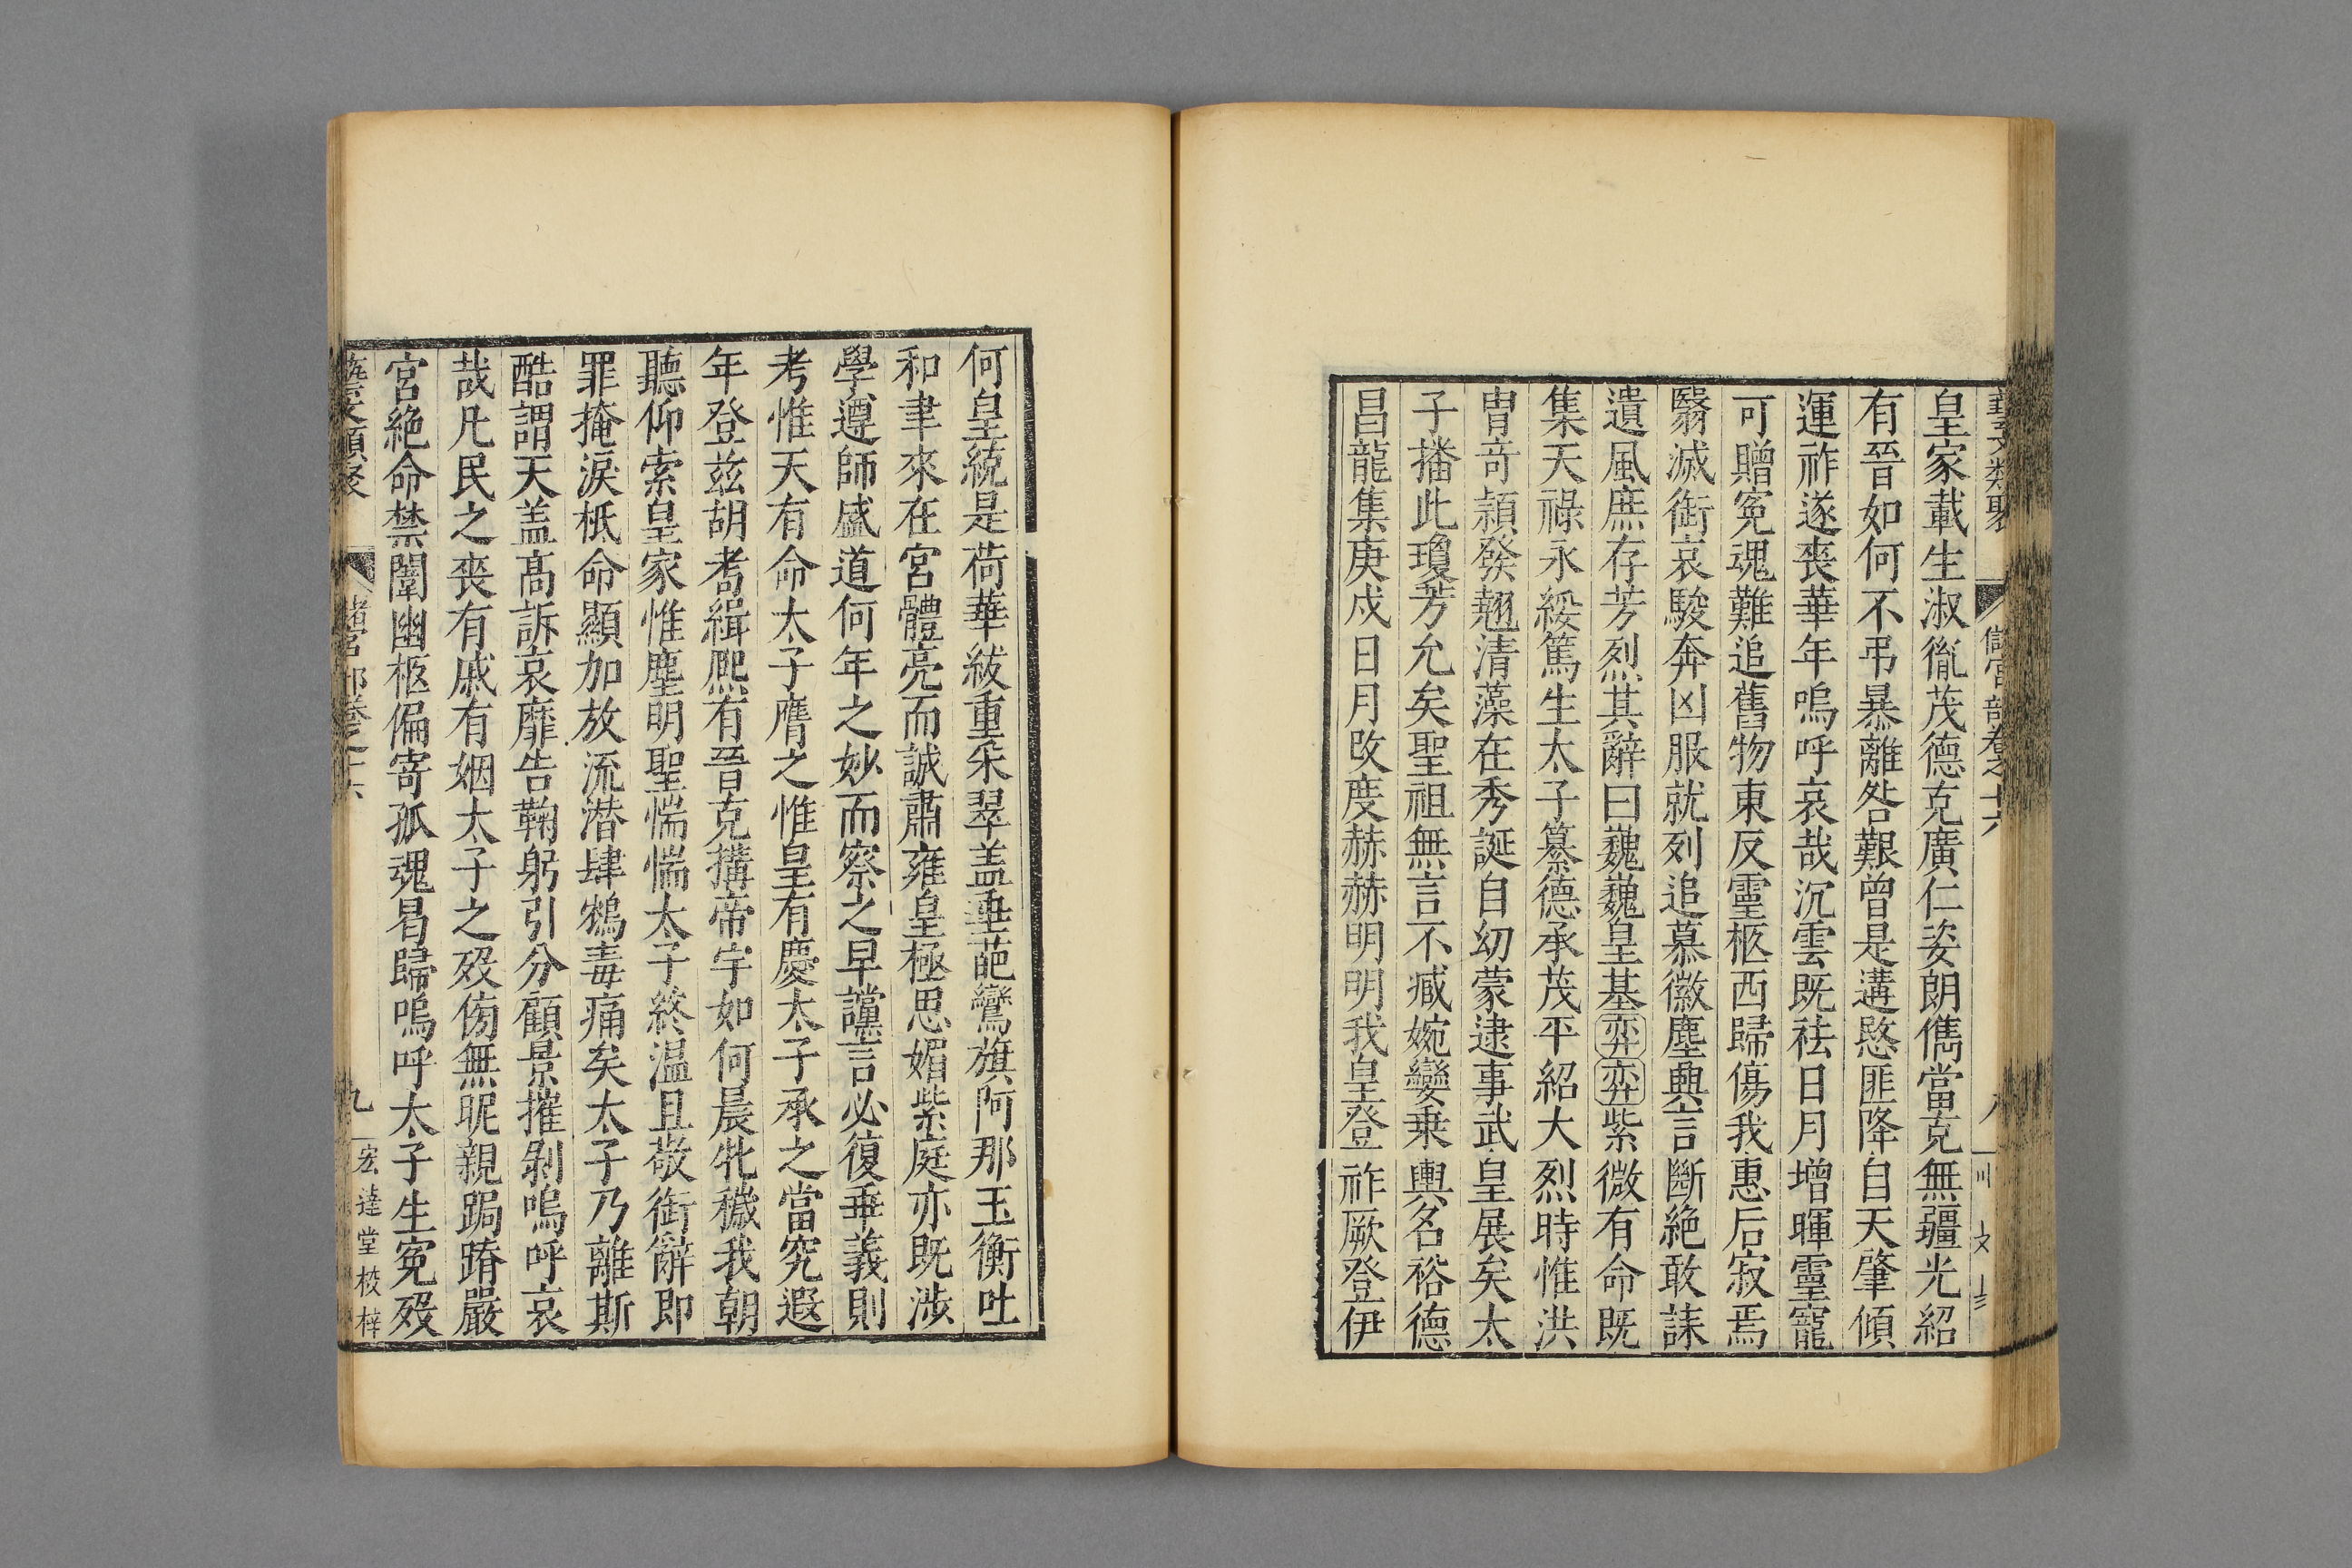 藝文類聚 儲宮部卷之十六 八
皇家載生淑胤茂德克廣仁姿朗儁當克無疆光紹
有晉如何不弔暴離咎艱曾是遘愍匪降自天肇傾
運祚遂喪華年嗚呼哀哉沉雲既祛日月增暉靈寵
可贈寃魂難追舊物東反靈柩西歸傷我惠后寂焉
翳滅銜哀駿奔凶服就列追慕徽塵興言斷絕敢誄
遺風庶存芳烈其辭曰巍巍皇基弈弈紫微有命既
集天祿永綏篤生太子纂德承茂平紹大烈時惟洪
冑奇穎發翹清藻在秀誕自幼蒙逮事武皇展矣太
子播此瓊芳允矣聖祖無言不臧婉孌乗輿名裕德
昌龍集庚戍日月改度赫赫明明我皇登祚厥登伊
何皇統是荷華紱重采翠盖垂葩鸞旗阿那玉衡吐
和聿來在宮體亮而誠肅雍皇極思媚紫庭亦既涉
學遵師盛道何年之妙而察之早讜言必復乗義則
考惟天有命太子膺之惟皇有慶太子承之當究遐
年登茲胡耇緝熈有晉克搆帝宇如何晨牝穢我朝
聽仰索皇家惟塵明聖惴惴太子終温且敬銜辭即
罪掩淚柢命顯加放流潜肆鴆毒痛矣太子乃離斯
酷謂天盖高訴哀靡告鞠躬引分顧景摧剝嗚呼哀
哉凡民之喪有戚有姻太子之歿傍無昵親跼蹐嚴
宮絶命禁闈幽柩偏寄孤魂曷歸嗚呼太子生寃歿
藝文類聚 儲宮部卷之十六 九 宏達堂校梓